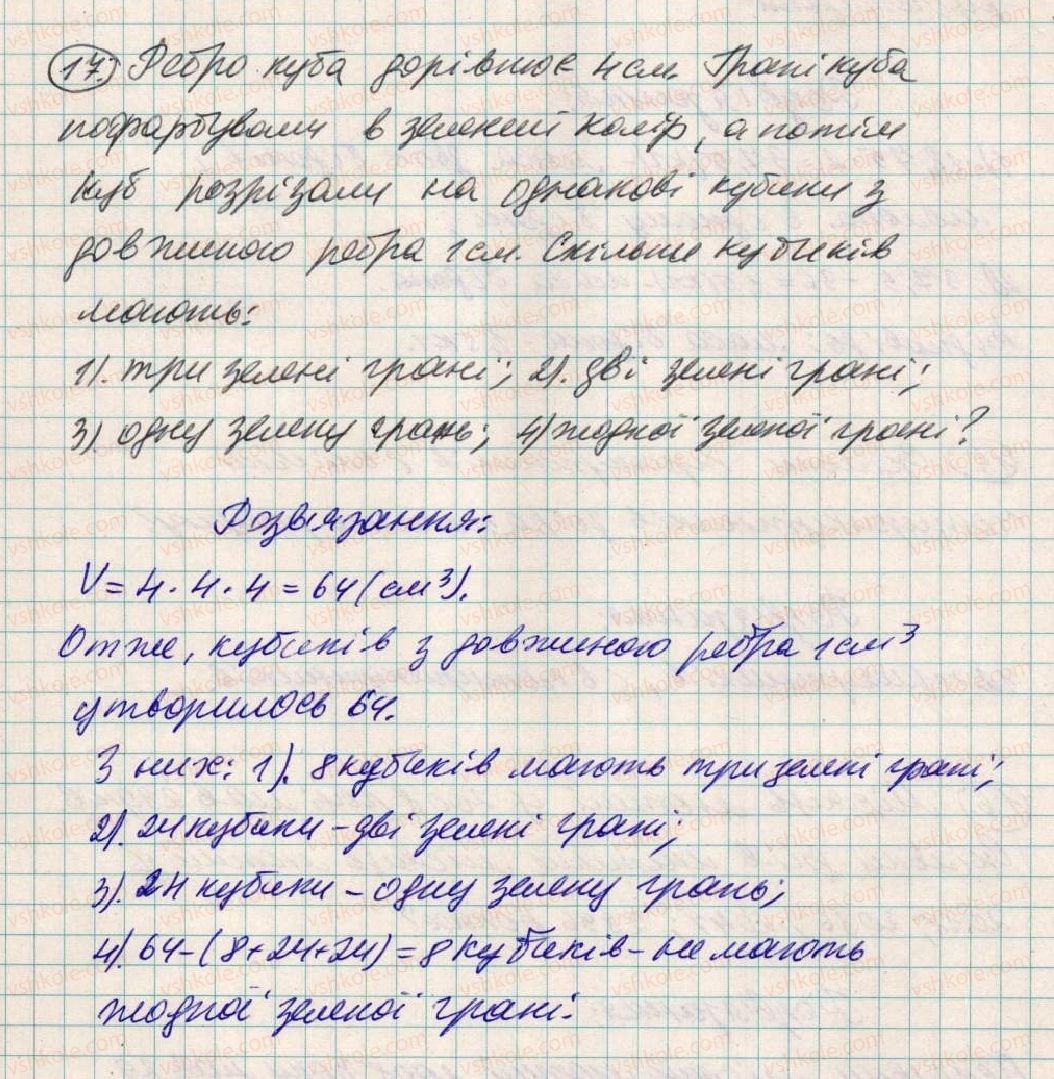 17. Ребро куба дорівнює 4 см. Грані куба
пофарбували в зелений колір, а потім
куб розрізали на однакові кубики з
довжиною ребра 1 см. Скільки кубиків
мають:
1). три зелені грані; 2). дві зелені грані;
3) одну зелену грань; 4) жодної зеленої грані?
Розв'язання:
V = 4 · 4 · 4 = 64 (см³).
Отже, кубиків з довжиною ребра 1 см³
утворилось 64.
З них: 1). 8 кубиків мають три зелені грані;
2). 24 кубики – дві зелені грані;
3). 24 кубики – одну зелену грань;
4). 64 – (8 + 24 + 24) = 8 кубиків – не мають
жодної зеленої грані.